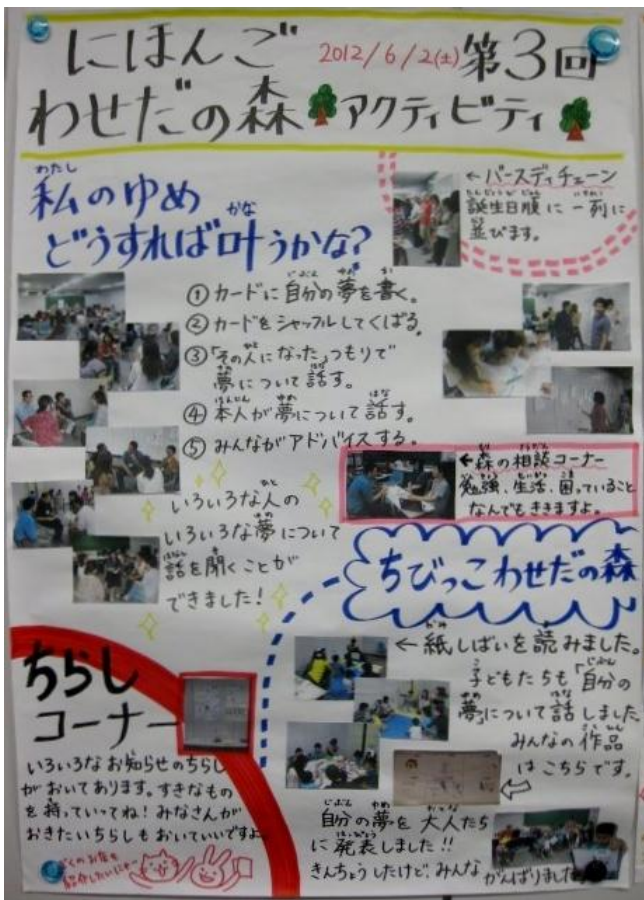 にほんご
2012/6/2(土) 第3回
わせだの森 アクティビティ
私のゆめ
わたし
どうすれば叶うかな?
かな
←バースディチェーン
誕生日順に一列に
並びます。
①カードに自分の夢を書く。
②カードをシャッフルしてくばる。
③「その人になった」つもりで
夢について話す。
④本人が夢について話す。
⑤みんながアドバイスする。
いろいろな人の
いろいろな夢について
話を聞くことが
できました!
←森の相談コーナー
勉強、生活、困っていること
なんでもききますよ。
ちびっこわせだの森
←紙しばいを読みました。
子どもたちも「自分の
夢」について話しました
みんなの作品
はこちらです。
自分の夢を大人たち
に発表しました!!
きんちょうしたけど、みんな
がんばりました
ちらし
コーナー
いろいろなお知らせのちらし
がおいてあります。すきなもの
を持っていってね!みなさんが
おきたいちらしもおいていいですよ
ぼくのお店も
紹介したいにゃー